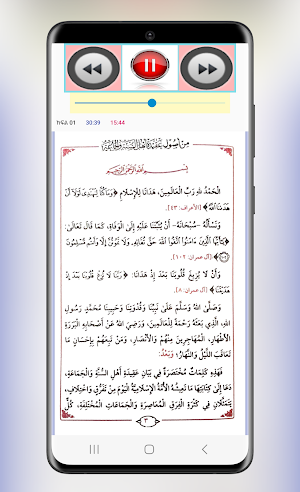 ክፍል 01 30:39 15:44
من أصول عقيدة أهل السنة والجماعة
بِسْمِ اللَّهِ الرَّحْمَنِ الرَّحِيمِ
الْحَمْدُ للهِ رَبِّ الْعَالَمِينَ، هَدَانَا لِلْإِسْلَامِ ﴿وَمَا كُنَّا لِنَهْتَدِيَ لَوْلَا أَنْ
هَدَانَا اللَّهُ﴾ [الأعراف: ٤٣].
وَنَسْأَلُهُ -سُبْحَانَهُ- أَنْ يُثَبِّتَنَا عَلَيْهِ إِلَى الْوَفَاةِ، كَمَا قَالَ تَعَالَى:
﴿يَا أَيُّهَا الَّذِينَ آمَنُوا اتَّقُوا اللَّهَ حَقَّ تُقَاتِهِ وَلَا تَمُوتُنَّ إِلَّا وَأَنْتُمْ مُسْلِمُونَ
﴾ [آل عمران: ١٠٢].
وَأَنْ لَا يُزِيغَ قُلُوبَنَا بَعْدَ إِذْ هَدَانَا: ﴿رَبَّنَا لَا تُزِغْ قُلُوبَنَا بَعْدَ إِذْ
هَدَيْتَنَا﴾ [آل عمران: ٨].
وَصَلَّى اللهُ وَسَلَّمَ عَلَى نَبِيِّنَا وَقُدْوَتِنَا وَحَبِيبِنَا مُحَمَّدٍ رَسُولِ
اللهِ، الَّذِي بَعَثَهُ رَحْمَةً لِلْعَالَمِينَ، وَرَضِيَ اللهُ عَنْ أَصْحَابِهِ الْبَرَرَةِ
الْأَطْهَارِ، الْمُهَاجِرِينَ مِنْهُمْ وَالْأَنْصَارِ، وَمَنْ تَبِعَهُمْ بِإِحْسَانٍ مَا
تَعَاقَبَ اللَّيْلُ وَالنَّهَارُ، وَبَعْدُ:
فَهَذِهِ كَلِمَاتٌ مُخْتَصَرَةٌ فِي بَيَانِ عَقِيدَةِ أَهْلِ السُّنَّةِ وَالْجَمَاعَةِ،
دَعَا إِلَى كِتَابَتِهَا مَا تَعِيشُهُ الْأُمَّةُ الْإِسْلَامِيَّةُ الْيَوْمَ مِنْ تَفَرُّقٍ وَاخْتِلَافٍ،
يَتَمَثَّلَانِ فِي كَثْرَةِ الْفِرَقِ الْمُعَاصِرَةِ وَالْجَمَاعَاتِ الْمُخْتَلِفَةِ، كُلٌّ
٣